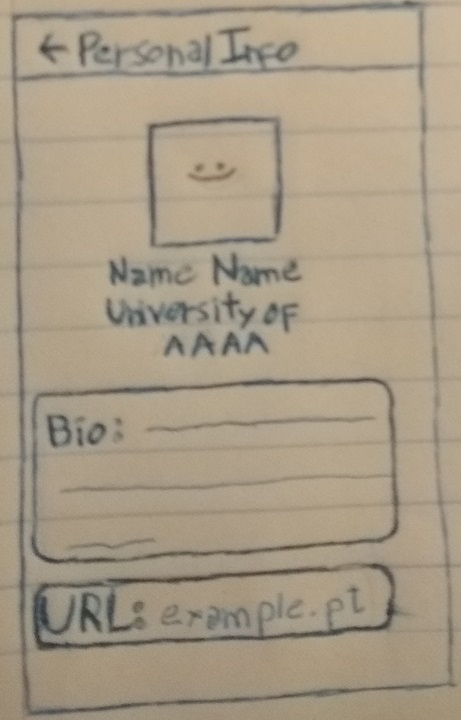 ← Personal Info
Name Name
University of
AAAA
Bio:
URL: example.pt